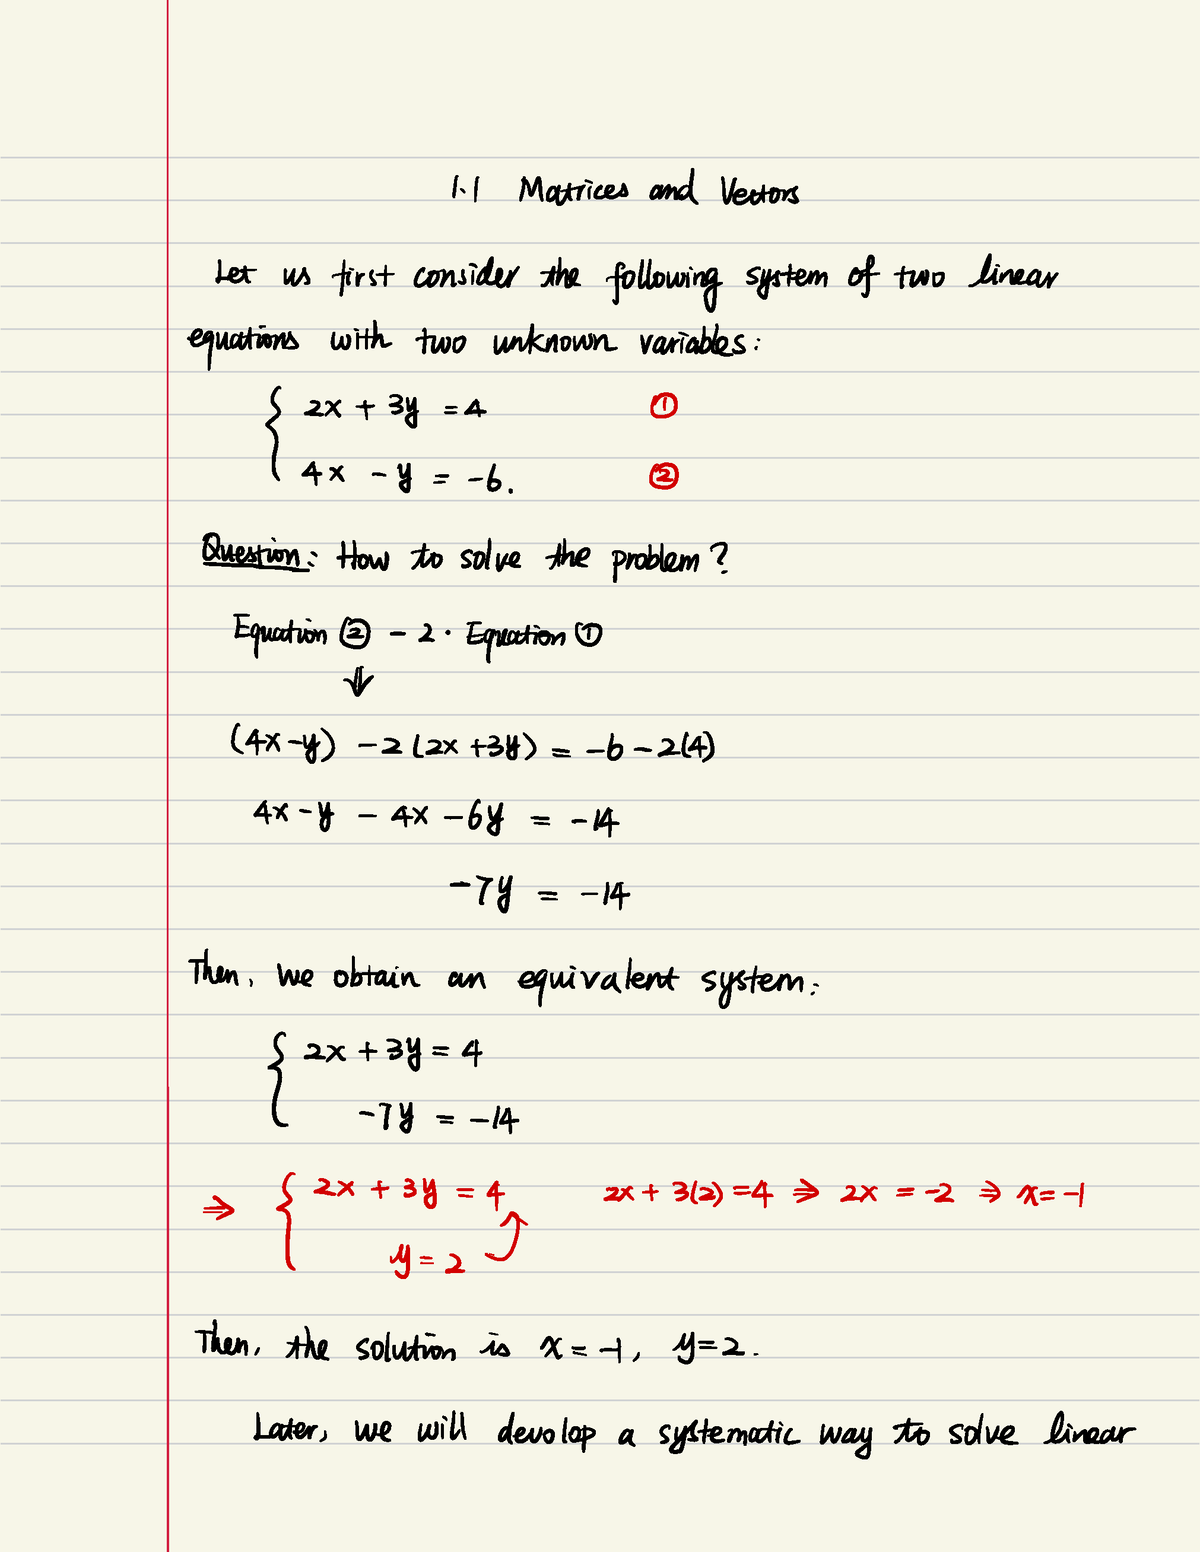 1.1 Matrices and Vectors
Let us first consider the following system of two linear
equations with two unknown variables:
{ 2x + 3y = 4 ①
4x - y = -6. ②
Question: How to solve the problem?
Equation ② - 2 · Equation ①
⇓
(4x-y) - 2(2x+3y) = -6-2(4)
4x-y - 4x - 6y = -14
-7y = -14
Then, we obtain an equivalent system:
{ 2x + 3y = 4
-7y = -14
⇒ { 2x + 3y = 4 2x + 3(2) = 4 ⇒ 2x = -2 ⇒ x = -1
y = 2
Then, the solution is x = -1, y = 2.
Later, we will devolop a systematic way to solve linear